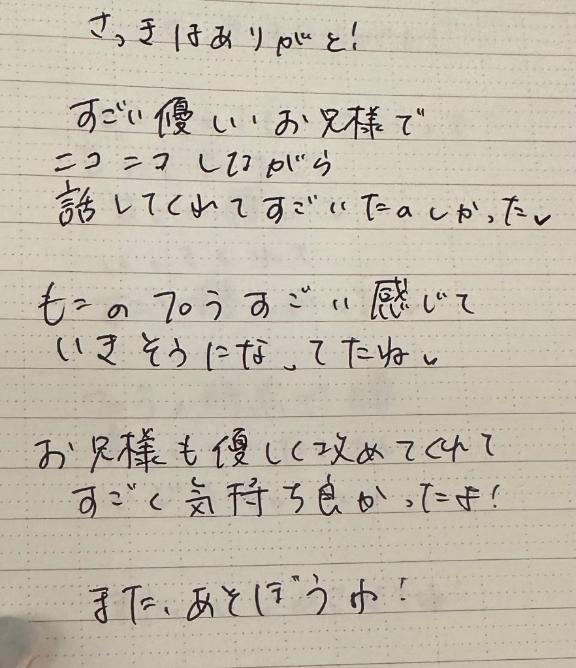 さっきはありがと!
すごい優しいお兄様で
ニコニコしながら
話してくれてすごいたのしかった
もこのプロうすごい感じて
いきそうになってたね
お兄様も優しく攻めてくれて
すごく気持ち良かったよ!
また、あそぼうね!